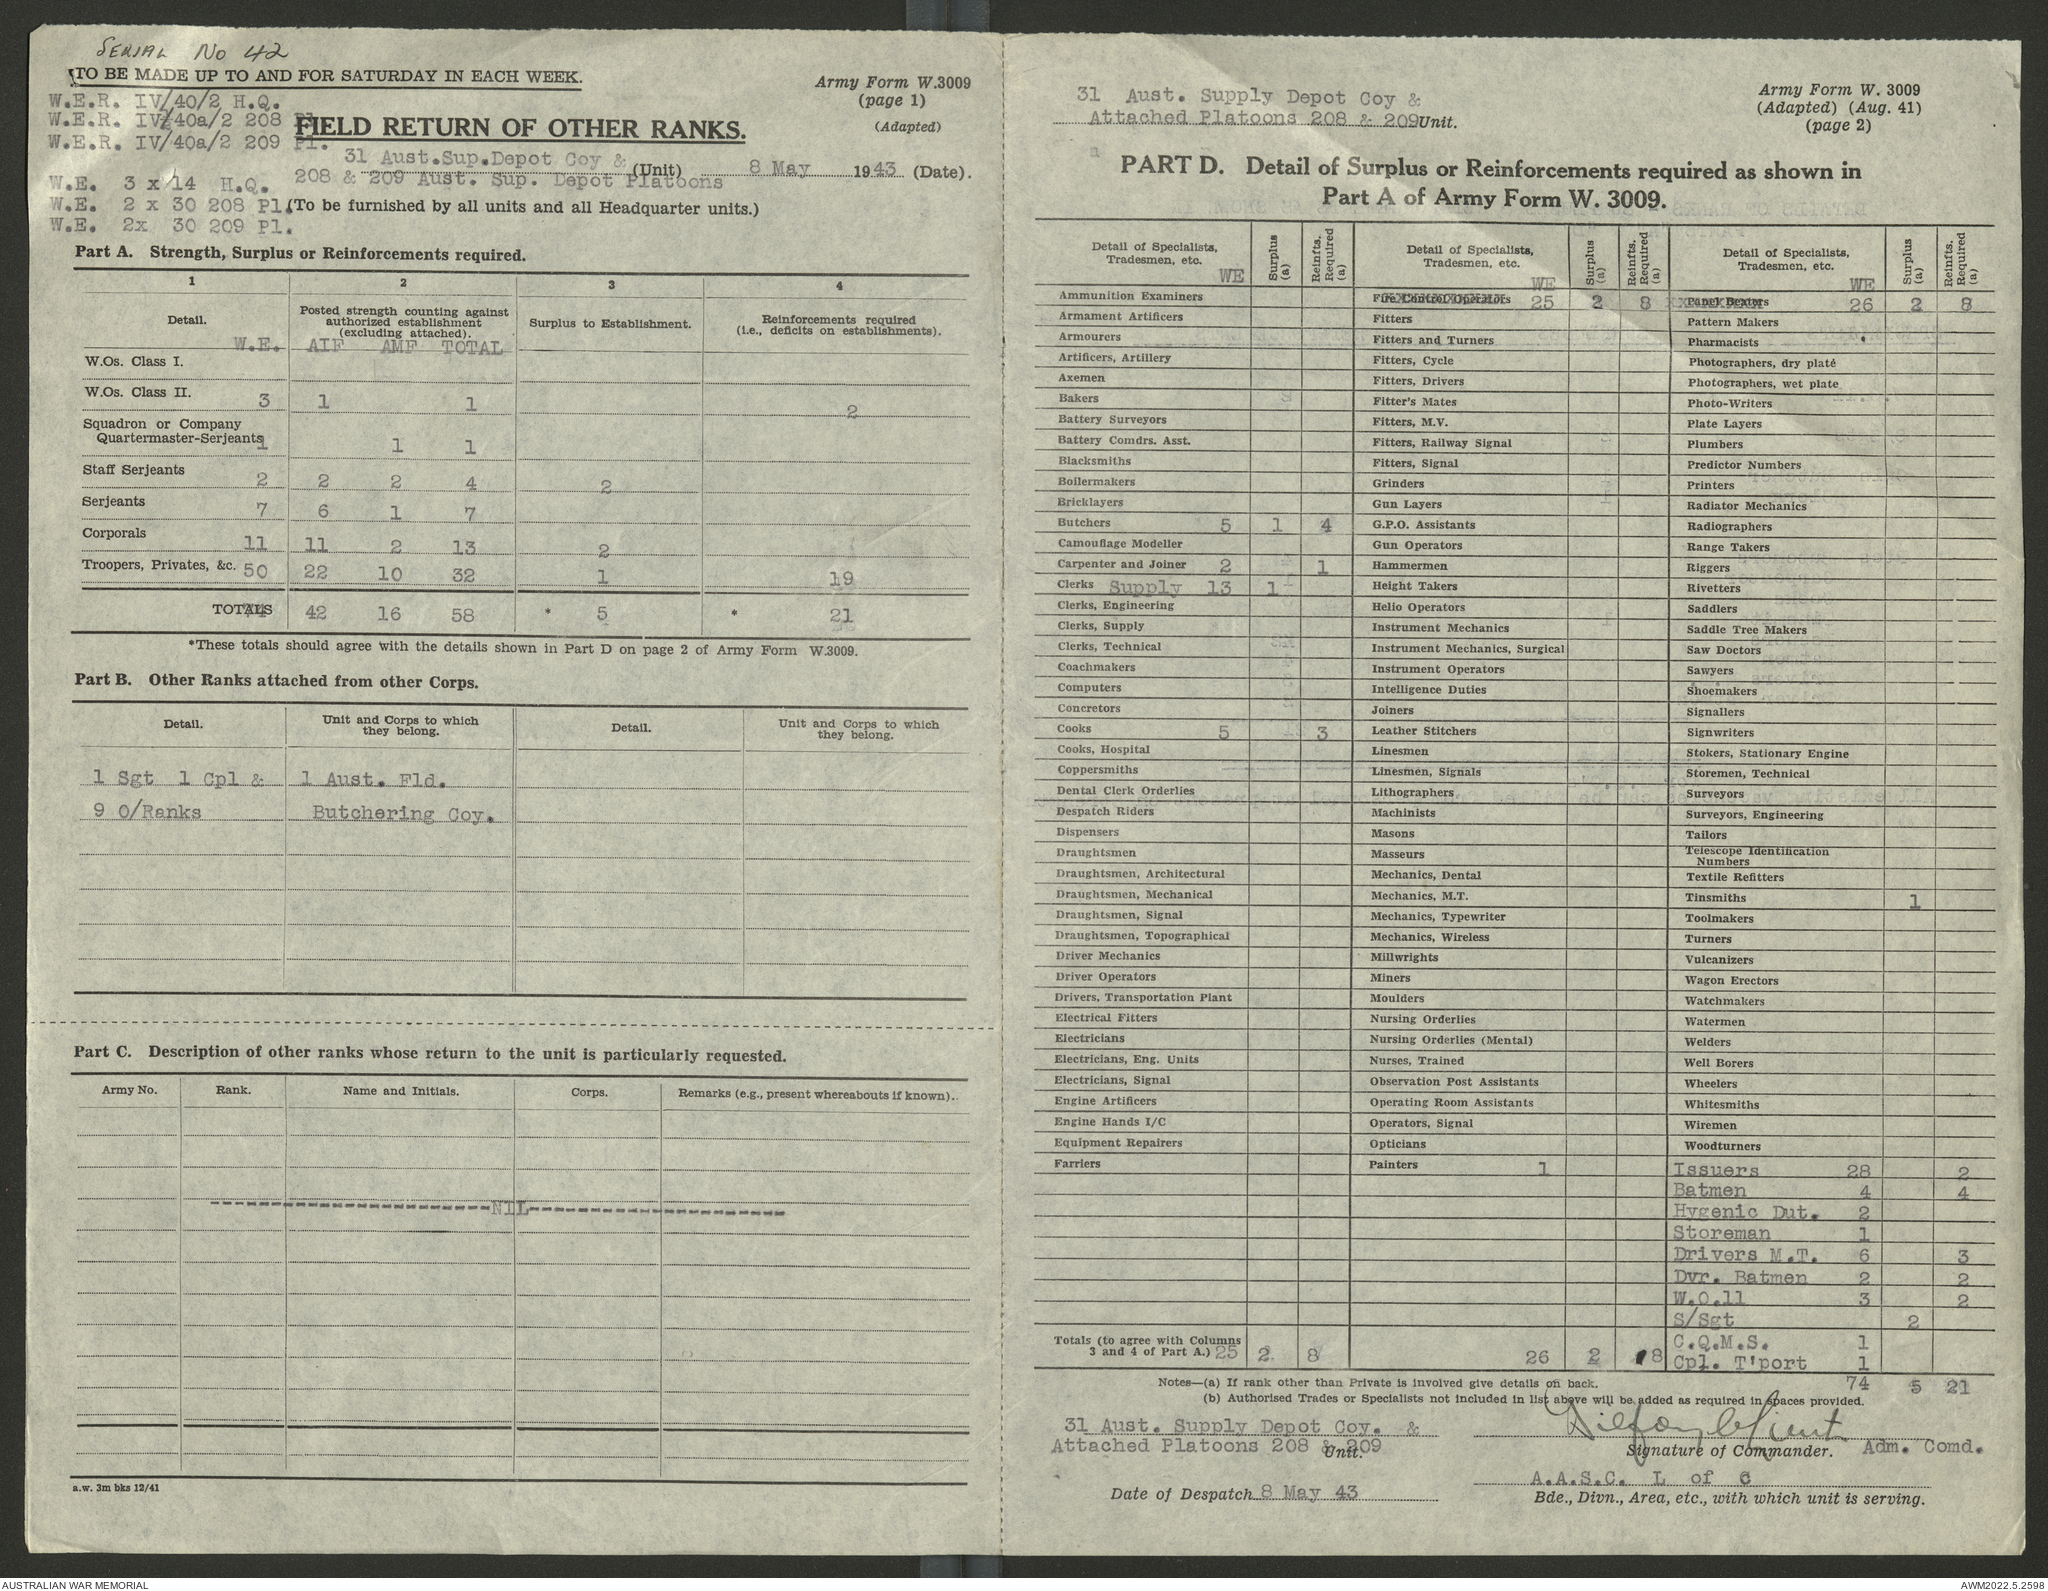 SERIAL No 42
TO BE MADE UP TO AND FOR SATURDAY IN EACH WEEK.
Army Form W.3009
(page 1)
(Adapted)
W.E.R. IV/40/2 H.Q.
W.E.R. IV/40a/2 208 Pl.
W.E.R. IV/40a/2 209 Pl.
FIELD RETURN OF OTHER RANKS.
31 Aust.Sup.Depot Coy & (Unit) 8 May 1943 (Date).
208 & 209 Aust. Sup. Depot Platoons
W.E. 3 x 14 H.Q.
W.E. 2 x 30 208 Pl.
W.E. 2x 30 209 Pl.
(To be furnished by all units and all Headquarter units.)
Part A. Strength, Surplus or Reinforcements required.
1 2 3 4
Detail. W.E.
Posted strength counting against
authorized establishment
(excluding attached).
AIF AMF TOTAL
Surplus to Establishment.
Reinforcements required
(i.e., deficits on establishments).
W.Os. Class I.
W.Os. Class II. 3 1 1 2
Squadron or Company
Quartermaster-Serjeants 1 1 1
Staff Serjeants 2 2 2 4 2
Serjeants 7 6 1 7
Corporals 11 11 2 13 2
Troopers, Privates, &c. 50 22 10 32 1 19
TOTALS 74 42 16 58 * 5 * 21
*These totals should agree with the details shown in Part D on page 2 of Army Form W.3009.
Part B. Other Ranks attached from other Corps.
Detail.
Unit and Corps to which
they belong.
Detail.
Unit and Corps to which
they belong.
1 Sgt 1 Cpl & 1 Aust. Fld.
9 O/Ranks Butchering Coy.
Part C. Description of other ranks whose return to the unit is particularly requested.
Army No. Rank. Name and Initials. Corps. Remarks (e.g., present whereabouts if known).
NIL
a.w. 3m bks 12/41
31 Aust. Supply Depot Coy &
Attached Platoons 208 & 209 Unit.
Army Form W. 3009
(Adapted) (Aug. 41)
(page 2)
PART D. Detail of Surplus or Reinforcements required as shown in
Part A of Army Form W. 3009.
Detail of Specialists,
Tradesmen, etc. WE
Surplus (a)
Reinfts. Required (a)
Detail of Specialists,
Tradesmen, etc. WE
Surplus (a)
Reinfts. Required (a)
Detail of Specialists,
Tradesmen, etc. WE
Surplus (a)
Reinfts. Required (a)
Ammunition Examiners
Armament Artificers
Armourers
Artificers, Artillery
Axemen
Bakers
Battery Surveyors
Battery Comdrs. Asst.
Blacksmiths
Boilermakers
Bricklayers
Butchers 5 1 4
Camouflage Modeller
Carpenter and Joiner 2 1
Clerks Supply 13 1
Clerks, Engineering
Clerks, Supply
Clerks, Technical
Coachmakers
Computers
Concretors
Cooks 5 3
Cooks, Hospital
Coppersmiths
Dental Clerk Orderlies
Despatch Riders
Dispensers
Draughtsmen
Draughtsmen, Architectural
Draughtsmen, Mechanical
Draughtsmen, Signal
Draughtsmen, Topographical
Driver Mechanics
Driver Operators
Drivers, Transportation Plant
Electrical Fitters
Electricians
Electricians, Eng. Units
Electricians, Signal
Engine Artificers
Engine Hands I/C
Equipment Repairers
Farriers
Totals (to agree with Columns
3 and 4 of Part A.) 25 2 8
Fire Control Operators 25 2 8
Fitters
Fitters and Turners
Fitters, Cycle
Fitters, Drivers
Fitter's Mates
Fitters, M.V.
Fitters, Railway Signal
Fitters, Signal
Grinders
Gun Layers
G.P.O. Assistants
Gun Operators
Hammermen
Height Takers
Helio Operators
Instrument Mechanics
Instrument Mechanics, Surgical
Instrument Operators
Intelligence Duties
Joiners
Leather Stitchers
Linesmen
Linesmen, Signals
Lithographers
Machinists
Masons
Masseurs
Mechanics, Dental
Mechanics, M.T.
Mechanics, Typewriter
Mechanics, Wireless
Millwrights
Miners
Moulders
Nursing Orderlies
Nursing Orderlies (Mental)
Nurses, Trained
Observation Post Assistants
Operating Room Assistants
Operators, Signal
Opticians
Painters 1
26 2 8
Panel Beaters 26 2 8
Pattern Makers
Pharmacists
Photographers, dry plate
Photographers, wet plate
Photo-Writers
Plate Layers
Plumbers
Predictor Numbers
Printers
Radiator Mechanics
Radiographers
Range Takers
Riggers
Rivetters
Saddlers
Saddle Tree Makers
Saw Doctors
Sawyers
Shoemakers
Signallers
Signwriters
Stokers, Stationary Engine
Storemen, Technical
Surveyors
Surveyors, Engineering
Tailors
Telescope Identification
Numbers
Textile Refitters
Tinsmiths 1
Toolmakers
Turners
Vulcanizers
Wagon Erectors
Watchmakers
Watermen
Welders
Well Borers
Wheelers
Whitesmiths
Wiremen
Woodturners
Issuers 28 2
Batmen 4 4
Hygenic Dut. 2
Storeman 1
Drivers M.T. 6 3
Dvr. Batmen 2 2
W.O.ll 3 2
S/Sgt 2
C.Q.M.S. 1
Cpl. T'port 1
74 5 21
Notes—(a) If rank other than Private is involved give details on back.
(b) Authorised Trades or Specialists not included in list above will be added as required in spaces provided.
31 Aust. Supply Depot Coy. &
Attached Platoons 208 & 209
Unit.
Signature of Commander. Adm. Comd.
A.A.S.C. L of C
Date of Despatch 8 May 43
Bde., Divn., Area, etc., with which unit is serving.
AUSTRALIAN WAR MEMORIAL
AWM2022.5.2598